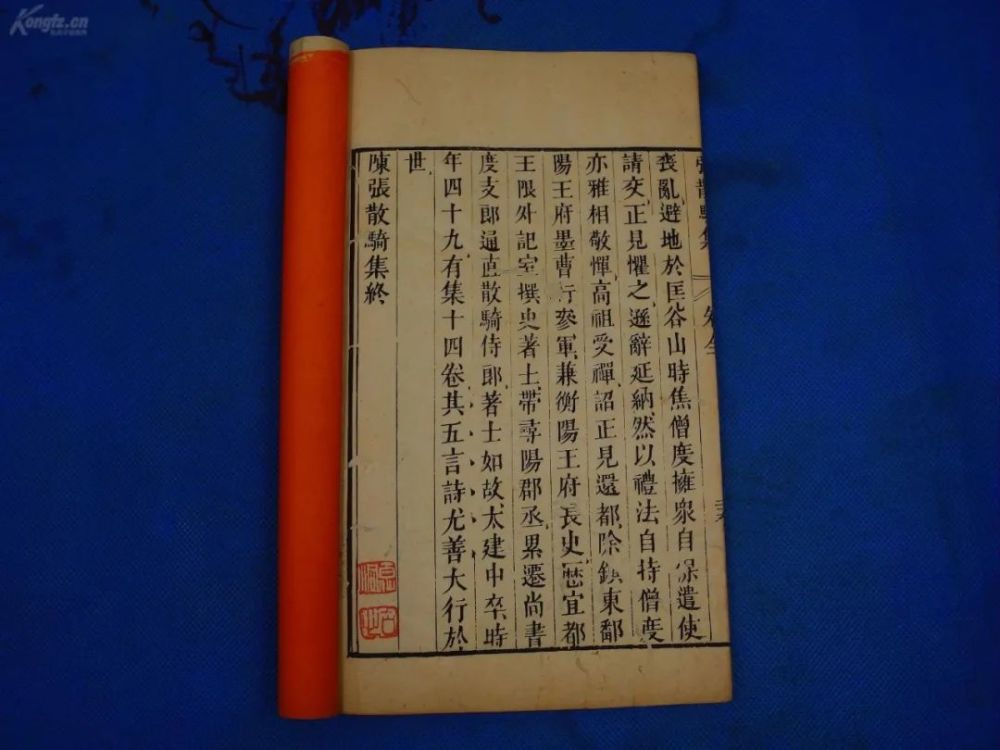 Kongfz.cn
張散騎集 卷全
喪亂避地於匡谷山時焦僧度擁衆自保遣使
請交正見懼之遜辭延納然以禮法自持僧度
亦雅相敬憚高祖受禪詔正見還都除鎮東鄱
陽王府墨曹行參軍兼衡陽王府長史歷宜都
王限外記室撰史著士帶尋陽郡丞累遷尚書
度支郎通直散騎侍郎著士如故太建中卒時
年四十九有集十四卷其五言詩尤善大行於
世
陳張散騎集終